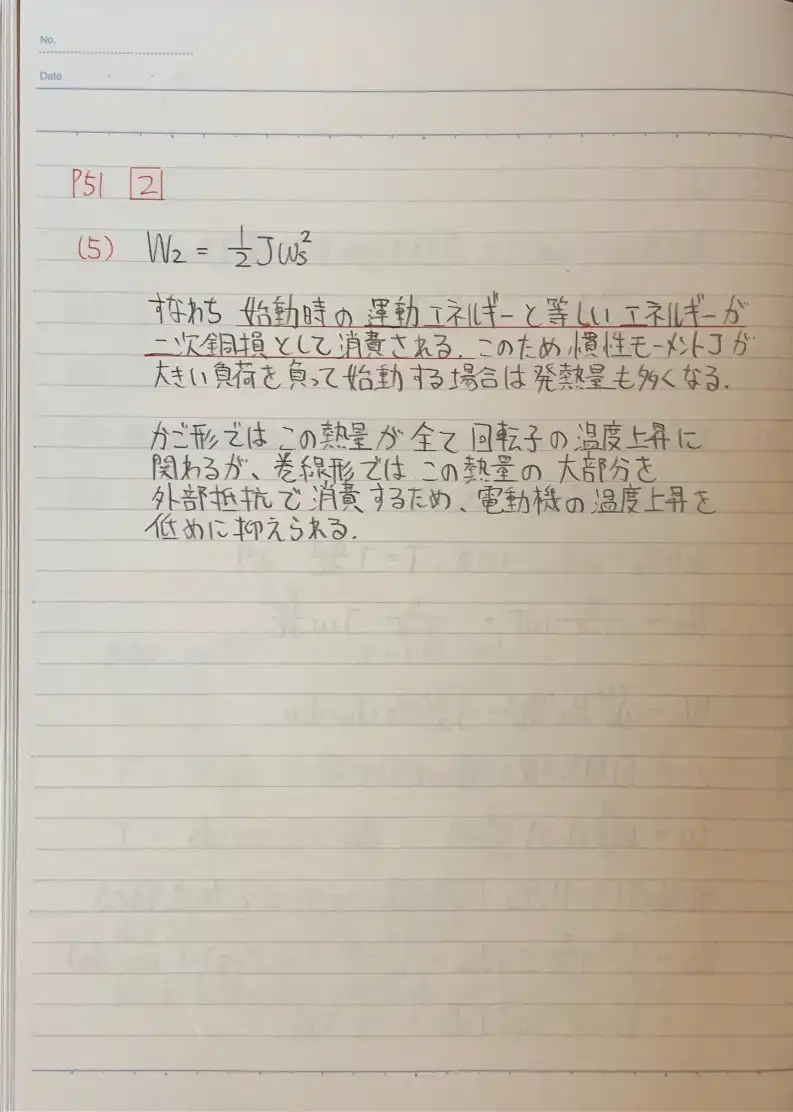 No.
Date
P51 2
(5) W₂ = 1/2 Jωs²
すなわち 始動時の運動エネルギーと等しいエネルギーが
二次銅損として消費される. このため慣性モーメントJが
大きい負荷を負って始動する場合は発熱量も多くなる.
かご形ではこの熱量が全て回転子の温度上昇に
関わるが、巻線形ではこの熱量の大部分を
外部抵抗で消費するため、電動機の温度上昇を
低めに抑えられる.